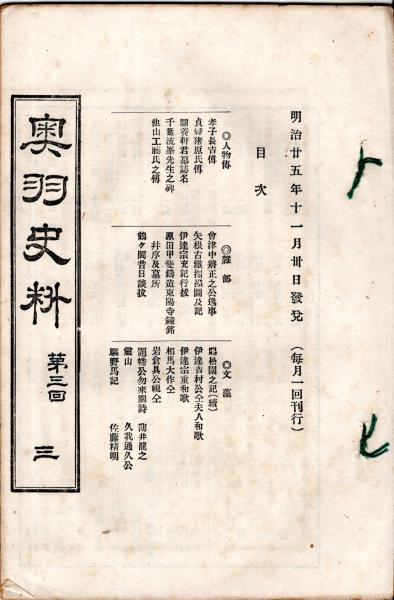 明治廿五年十一月卅日發兌（每月一回刊行）
目次
◎人物傳
孝子長吉傳
貞婦猪原氏傳
關養軒君墓誌名
千葉流峯先生之碑
他山工藤氏之傳
◎雜部
會津中將正之公逸事
矢根古鐵摺摸圖及記
伊達宗充記行拔
原田甲斐鑄造東陽寺鐘銘
并序及墓所
鶴ケ岡昔日談拔
◎文藻
嶋松園之記（續）
伊達吉村公仝夫人和歌
伊達宗重和歌
相馬大作仝
岩倉具公視仝
題幡公勿來關詩 蒲井龍之
靈山 久我通久公
驅野馬記 佐藤精明
奥羽史料 第三回 三